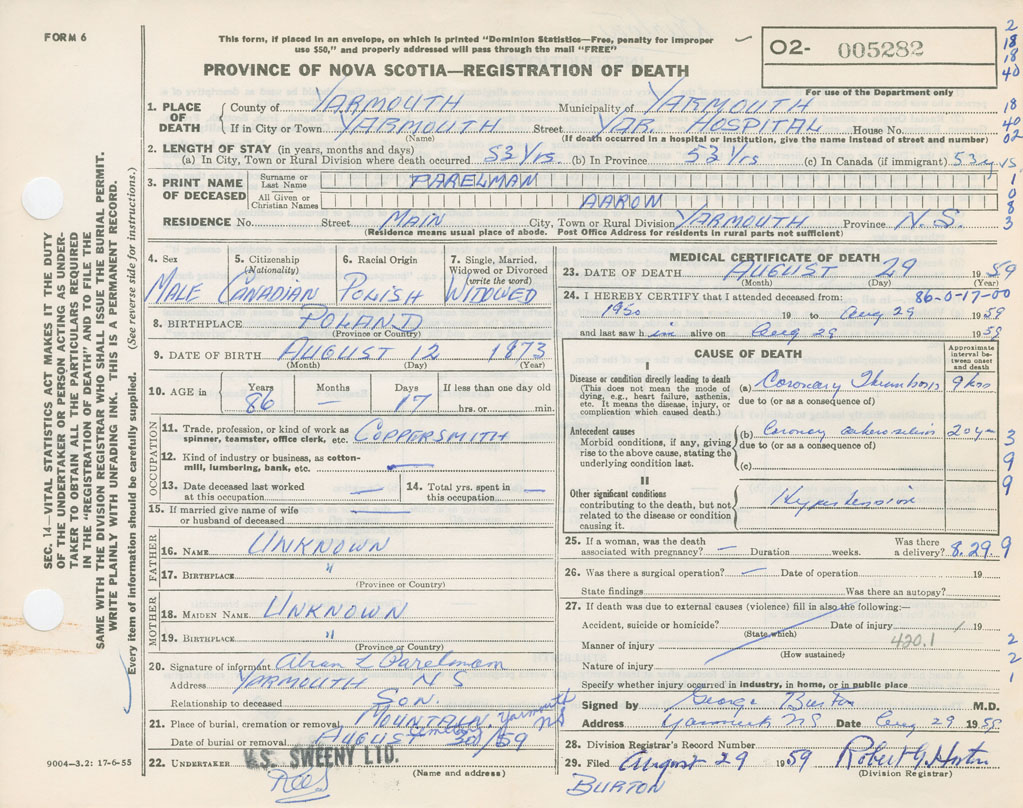 FORM 6
This form, if placed in an envelope, on which is printed "Dominion Statistics—Free, penalty for improper
use $50," and properly addressed will pass through the mail "FREE"
PROVINCE OF NOVA SCOTIA—REGISTRATION OF DEATH
O2- 005282
For use of the Department only
2
18
18
40
18
40
02
1
0
8
3
SEC. 14—VITAL STATISTICS ACT MAKES IT THE DUTY
OF THE UNDERTAKER OR PERSON ACTING AS UNDER-
TAKER TO OBTAIN ALL THE PARTICULARS REQUIRED
IN THE "REGISTRATION OF DEATH" AND TO FILE THE
SAME WITH THE DIVISION REGISTRAR WHO SHALL ISSUE THE BURIAL PERMIT.
WRITE PLAINLY WITH UNFADING INK. THIS IS A PERMANENT RECORD.
Every item of information should be carefully supplied. (See reverse side for instructions.)
1. PLACE OF DEATH
County of YARMOUTH Municipality of YARMOUTH
If in City or Town YARMOUTH Street YAR. HOSPITAL House No.
(Name) (If death occurred in a hospital or institution, give the name instead of street and number)
2. LENGTH OF STAY (in years, months and days)
(a) In City, Town or Rural Division where death occurred 53 Yrs (b) In Province 53 Yrs (c) In Canada (if immigrant) 53 yrs
3. PRINT NAME OF DECEASED
Surname or Last Name PARELMAN
All Given or Christian Names AARON
RESIDENCE No. Street MAIN City, Town or Rural Division YARMOUTH Province N.S.
(Residence means usual place of abode. Post Office Address for residents in rural parts not sufficient)
4. Sex 5. Citizenship (Nationality) 6. Racial Origin 7. Single, Married, Widowed or Divorced (write the word)
MALE CANADIAN POLISH WIDOWED
8. BIRTHPLACE POLAND
(Province or Country)
9. DATE OF BIRTH AUGUST 12 1873
(Month) (Day) (Year)
10. AGE in Years Months Days If less than one day old
86 — 17 hrs. or min.
OCCUPATION
11. Trade, profession, or kind of work as spinner, teamster, office clerk, etc. COPPERSMITH
12. Kind of industry or business, as cotton-mill, lumbering, bank, etc. —
13. Date deceased last worked at this occupation — 14. Total yrs. spent in this occupation —
15. If married give name of wife or husband of deceased —
FATHER
16. NAME UNKNOWN
17. BIRTHPLACE "
(Province or Country)
MOTHER
18. MAIDEN NAME UNKNOWN
19. BIRTHPLACE "
(Province or Country)
20. Signature of informant Abram L Parelman
Address YARMOUTH N S
Relationship to deceased SON.
21. Place of burial, cremation or removal MOUNTAIN Cemetery Yarmouth NS
Date of burial or removal AUGUST 30/59
22. UNDERTAKER V.S. SWEENY LTD.
(Name and address)
9004—3.2: 17-6-55
MEDICAL CERTIFICATE OF DEATH
23. DATE OF DEATH AUGUST 29 1959
(Month) (Day) (Year)
24. I HEREBY CERTIFY that I attended deceased from: 86-0-17-00
1950 19 to Aug 29 1959
and last saw him alive on Aug 29 1959
CAUSE OF DEATH
Approximate interval between onset and death
I
Disease or condition directly leading to death (a) Coronary Thrombosis 9 hos
(This does not mean the mode of dying, e.g., heart failure, asthenia, etc. It means the disease, injury, or complication which caused death.)
due to (or as a consequence of)
Antecedent causes (b) Coronary
Morbid conditions, if any, giving rise to the above cause, stating the underlying condition last.
due to (or as a consequence of)
(c)
3
9
9
II
Other significant conditions contributing to the death, but not related to the disease or condition causing it. Hypertension
25. If a woman, was the death associated with pregnancy? — Duration weeks. Was there a delivery? 8.29.9
26. Was there a surgical operation? — Date of operation 19
State findings Was there an autopsy?
27. If death was due to external causes (violence) fill in also the following:—
Accident, suicide or homicide? Date of injury 19
(State which)
Manner of injury 420.1
(How sustained)
Nature of injury
2
2
1
Specify whether injury occurred in industry, in home, or in public place
Signed by George Burton M.D.
Address Yarmouth NS Date Aug 29 1959
28. Division Registrar's Record Number
29. Filed August 29 1959
(Division Registrar)
BURTON